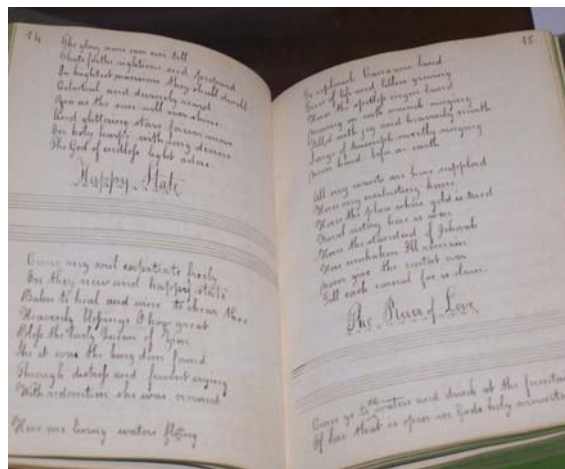 14
The glory none can ever tell
State for the righteous and
In brightest mansions they shall dwell
Celestial and
as the sun will ever shine
And glittering stars forever move
On holy harps with song divine
The God of endless light adore.
Happy State
Come my soul expatiate freely
In they new and happy state
Balm to heal and wine to chear thee
Heavenly blessings O how great
Bless the Lady of
She it was the king
Through distress and fervent crying
With redemption she was crowned
Here are living waters flowing
15
In Canaans land
of life and lilies growing
Here the spotless virgin band
on with music ringing
Filled with joy and heavenly mirth
Songs of triumph sweetly singing
before on earth
All my wants are here supplied
Here my everlasting home
Here the place where gold is tried
resting here is won
Here the standard of Jehovah
unshaken Ill remain
give the contest over
Till each carnal foe is slain.
The River of Love
Come ye to the waters and drink at the fountain
Of love that is open in Gods holy mountain